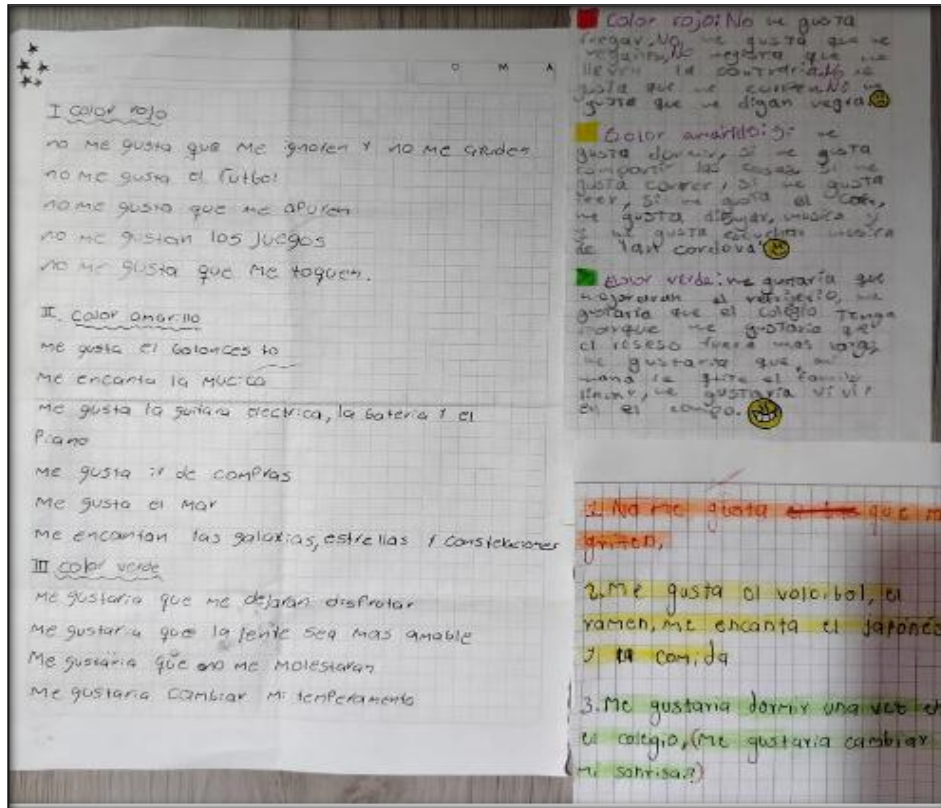 D M A
I color rojo
no me gusta que me ignoren y no me
no me gusta el futbol
no me gusta que me apuren
no me gustan los juegos
no me gusta que me toquen.
II. color amarillo
me gusta el
me encanta la
me gusta la guitara electrica, la bateria y el
Piano
me gusta ir de compras
me gusta el mar
me encantan las galaxias, estrellas y constelaciones
III color verde
me gustaria que me dejaran disfrutar
me gustaria que la jente sea mas amable
Me gustaria que no me molestaran
me gustaria cambiar mi temperamento
Color rojo: No me gusta
fregar, No me gusta que me
regañen, No me gusta que me
lleven la contraria, No me
gusta que me No me
gusta que me digan negra
Color amarillo: Si me
gusta dormir, si me gusta
compartir las cosas, si me
gusta correr, si me gusta
leer, si me gusta el
me gusta dibujar, musica y
me gusta escuchar musica
de cordova
Color verde: me gustaria que
mejoraran el refrijerio, me
gustaria que el colegio tenga
porque me gustaria que
el reseso fuera mas largo,
me gustaria que mi
mama le el
me gustaria vivir
en el
1. No me gusta que me
griten,
2. Me gusta el voleibol, el
ramen, me encanta el japonés
y la comida
3. Me gustaria dormir una vez en
el colegio, (me gustaria cambiar
mi sonrisa?)